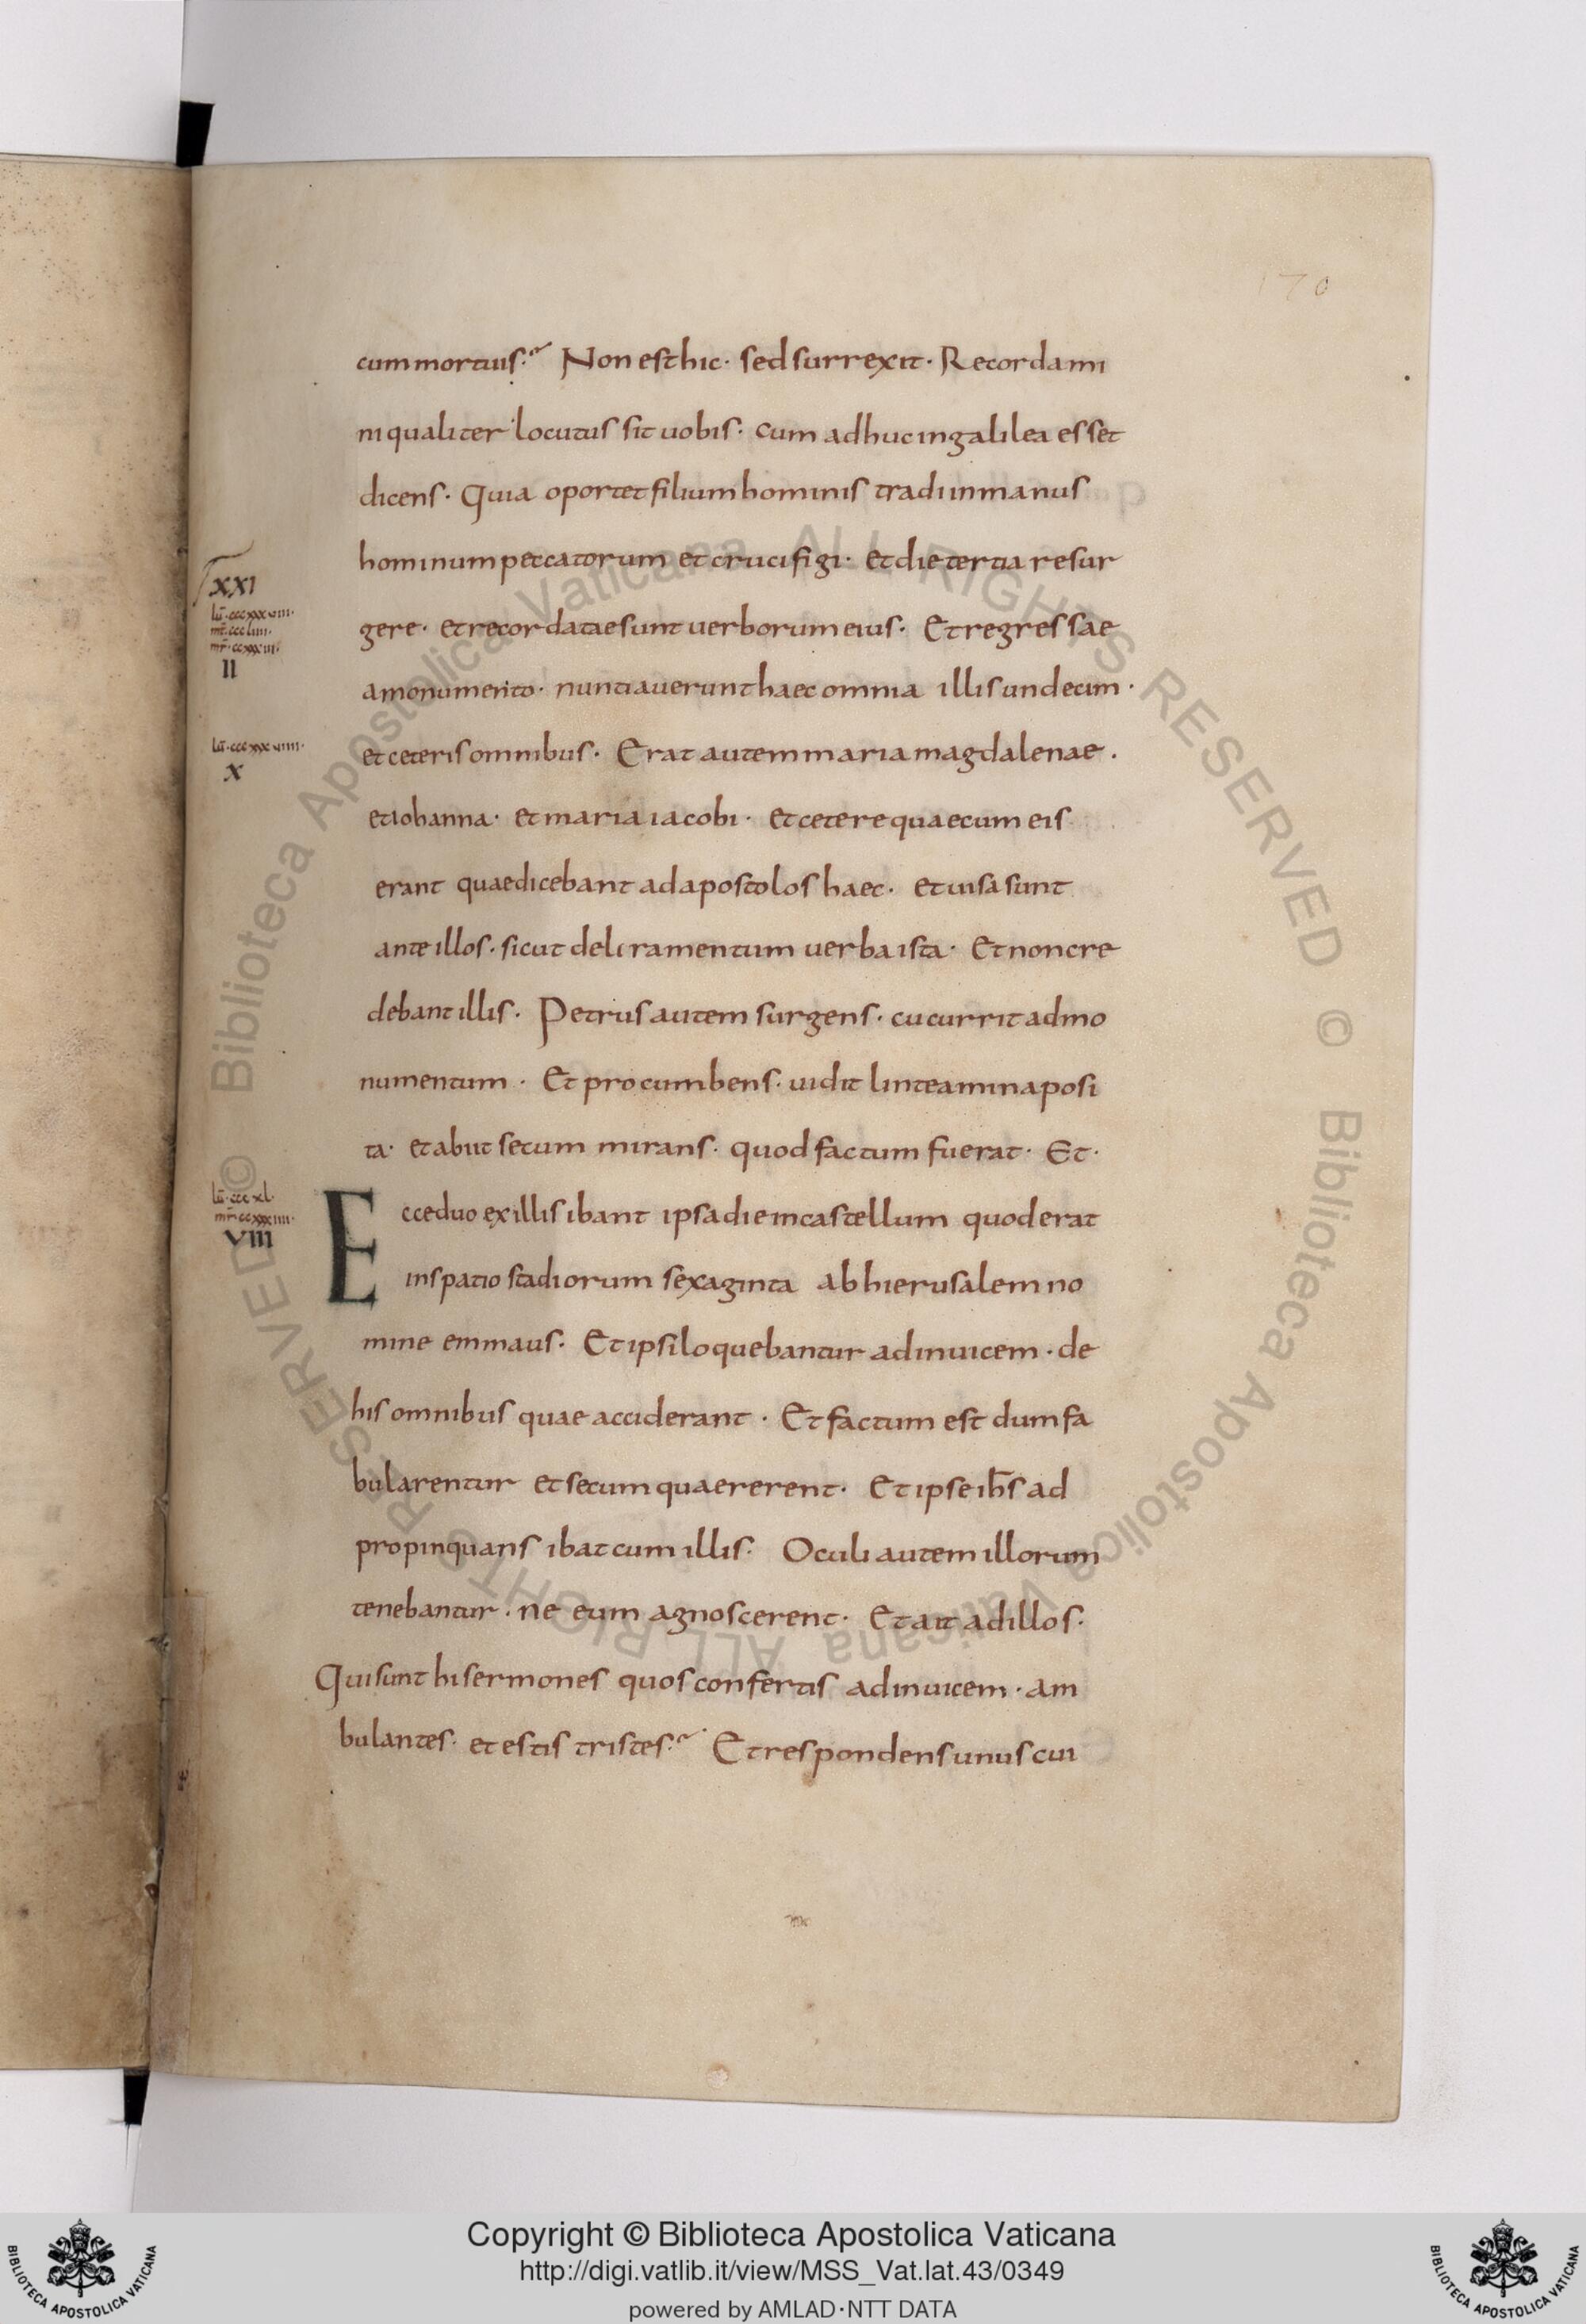 170
cum mortuis? Non est hic· sed surrexit· Recordami
ni qualiter locutus sit uobis· cum adhuc in galilea esset
dicens· Quia oportet filium hominis tradi in manus
hominum peccatorum et crucifigi· et die tertia resur
XXI
lū·cccxxxviii·
mt̄·cccliiii·
mr̄·ccxxxiii·
II
gere· et recordatae sunt uerborum eius· Et regressae
a monumento· nuntiauerunt haec omnia illis undecim·
lū·cccxxxviiii·
X
et ceteris omnibus· Erat autem maria magdalenae·
et iohanna· et maria iacobi· et cetere quae cum eis
erant quae dicebant ad apostolos haec· et uisa sunt
ante illos· sicut deliramentum uerba ista· Et non cre
debant illis· Petrus autem surgens· cucurrit ad mo
numentum· Et procumbens· uidit linteamina posi
ta· et abiit secum mirans· quod factum fuerat· Et·
lū·cccxl·
mr̄·ccxxxiiii·
VIII
Ecce duo ex illis ibant ipsa die in castellum quod erat
in spatio stadiorum sexaginta ab hierusalem no
mine emmaus· Et ipsi loquebantur ad inuicem· de
his omnibus quae acciderant· Et factum est dum fa
bularentur et secum quaererent· Et ipse ih̄s ad
propinquans ibat cum illis· Oculi autem illorum
tenebantur· ne eum agnoscerent· Et ait ad illos·
Qui sunt hi sermones quos confertis ad inuicem· am
bulantes· et estis tristes? Et respondens unus cui
© Biblioteca Apostolica Vaticana ALL RIGHTS RESERVED © Biblioteca Apostolica Vaticana ALL RIGHTS RESERVED
Copyright © Biblioteca Apostolica Vaticana
http://digi.vatlib.it/view/MSS_Vat.lat.43/0349
powered by AMLAD·NTT DATA
BIBLIOTECA APOSTOLICA VATICANA
BIBLIOTECA APOSTOLICA VATICANA